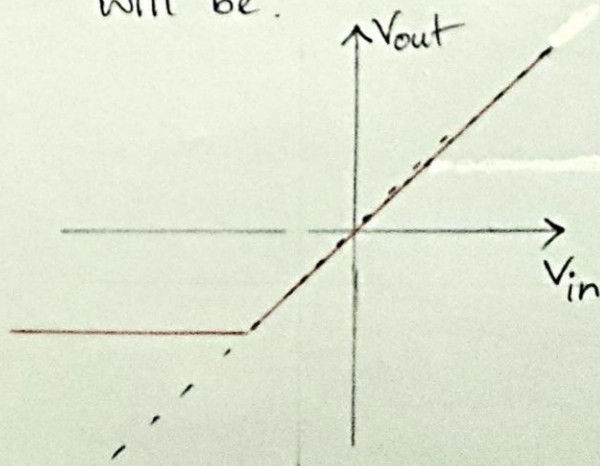 will be.
Vout
Vin